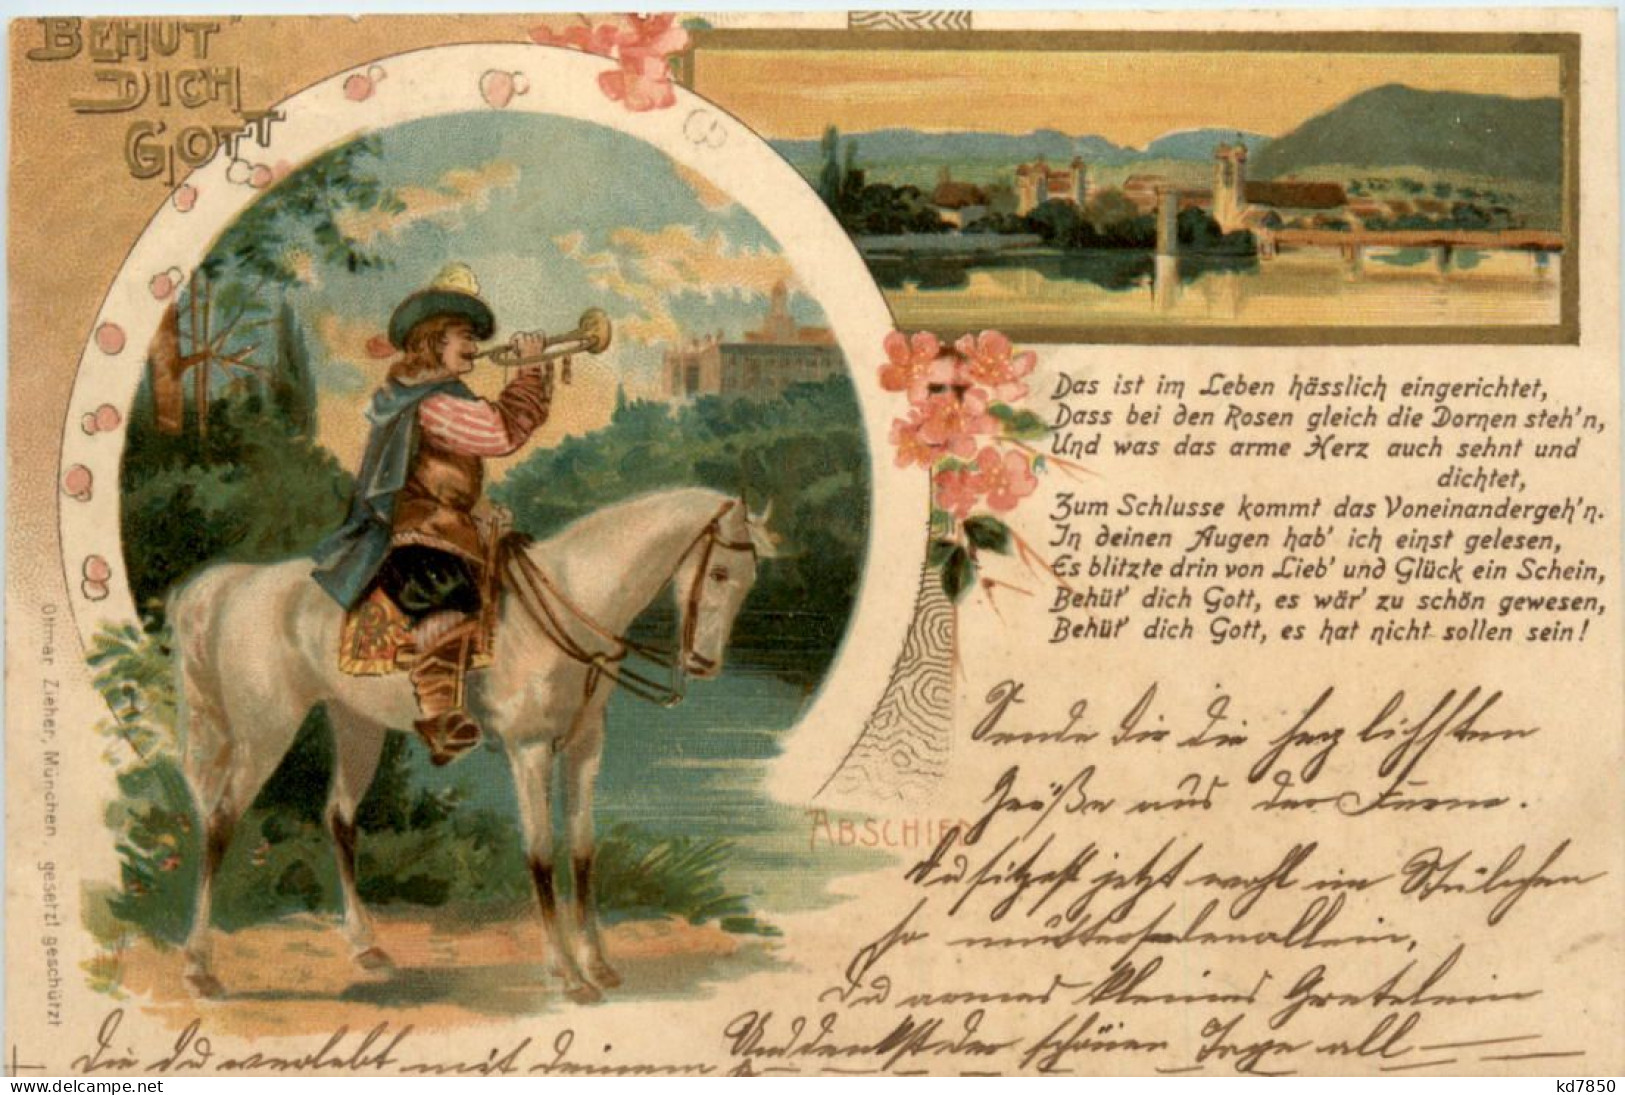 BEHÜT'
DICH
GOTT
Das ist im Leben hässlich eingerichtet,
Dass bei den Rosen gleich die Dornen steh'n,
Und was das arme Herz auch sehnt und
dichtet,
Zum Schlusse kommt das Voneinandergeh'n.
In deinen Augen hab' ich einst gelesen,
Es blitzte drin von Lieb' und Glück ein Schein,
Behüt' dich Gott, es wär' zu schön gewesen,
Behüt' dich Gott, es hat nicht sollen sein!
Sende dir die herzlichsten
Grüße aus der Ferne.
ABSCHIED
Du sitzest jetzt wohl im Stübchen
so mutterseelenallein,
Du armes kleines Gretelein
Und denkst der schönen Tage all
Die du verlebt mit deinem
Ottmar Zieher, München. gesetzl geschützt
kd7850